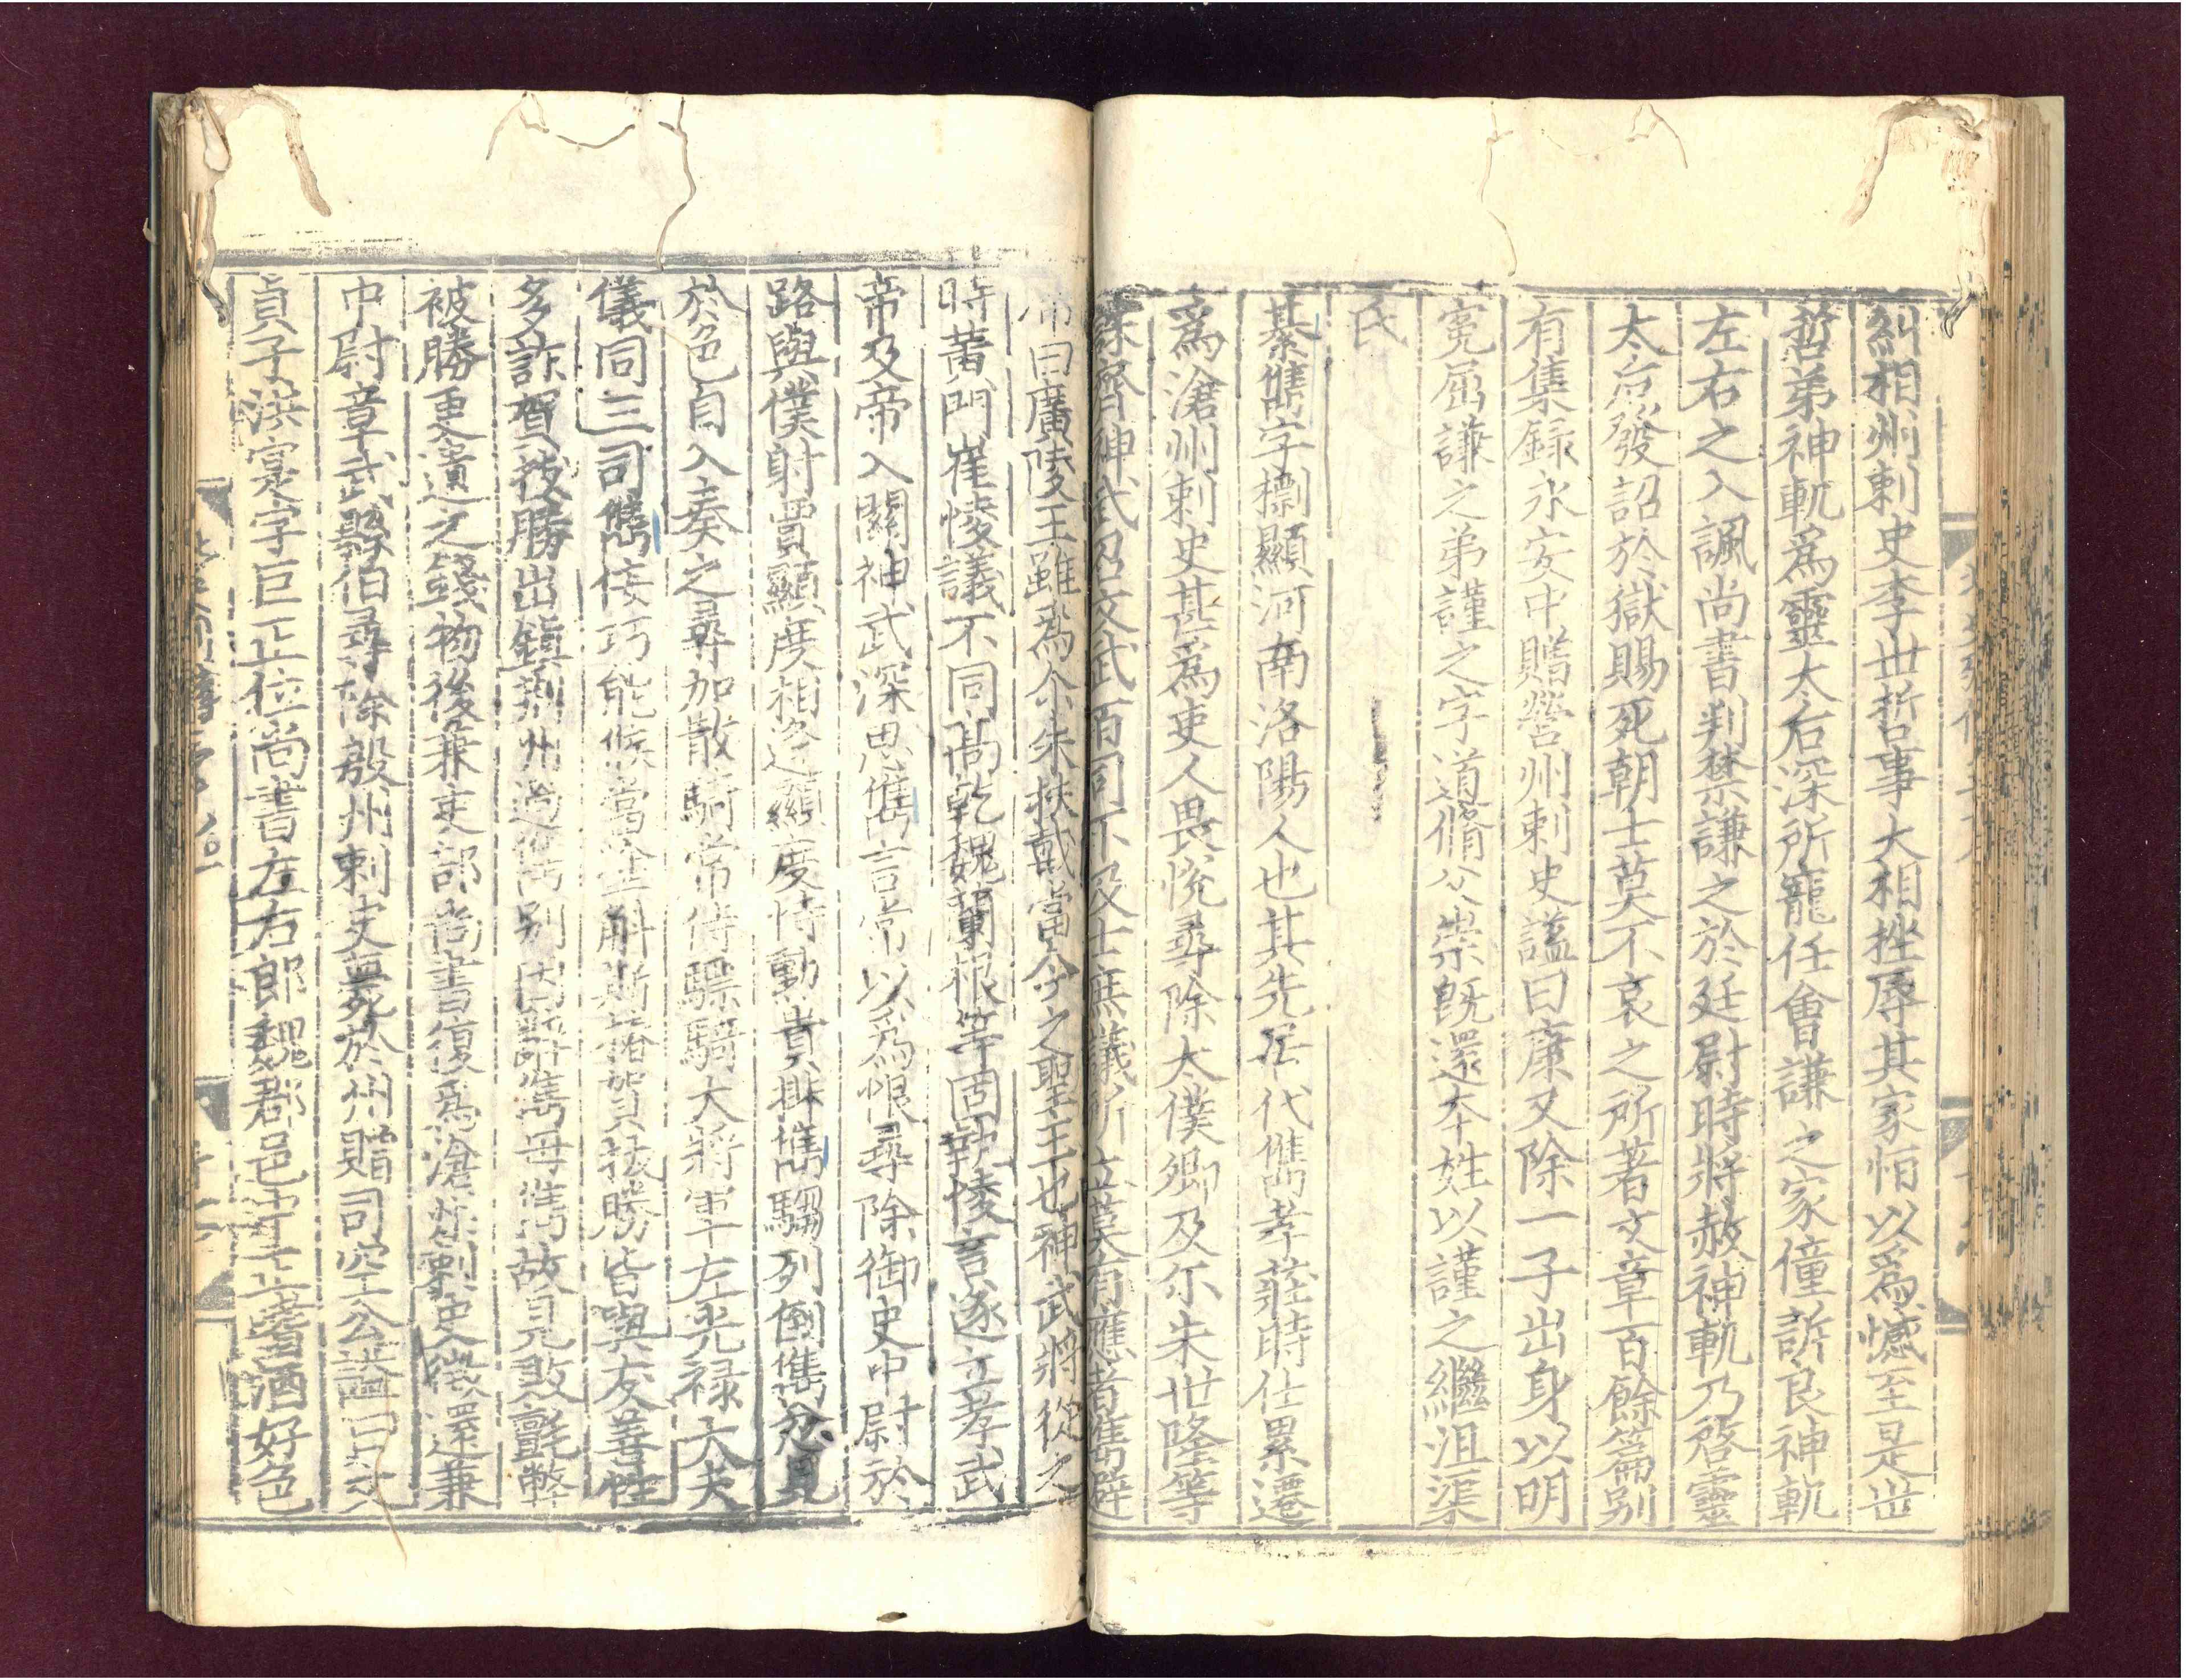 糾相州刺史李世哲事大相挫辱其家怕以爲憾至是世
哲弟神軌爲靈太后深所寵任會謙之家僮訴良神軌
左右之入諷尚書判禁謙之於廷尉時將赦神軌乃啓靈
太后發詔於獄賜死朝士莫不哀之所著文章百餘篇別
有集録永安中贈營州刺史謚曰康又除一子出身以明
寃屈謙之弟謹之字道脩父崇旣還本姓以謹之繼沮渠
氏
綦儁字檦顯河南洛陽人也其先居代儁孝莊時仕累遷
爲滄州刺史甚爲吏人畏悅尋除太僕卿及尔朱世隆等
誅齊神武召文武百司下及士庶議所立莫有應者儁避
帝曰廣陵王雖爲尒朱扶戴當今之聖主也神武將從之
時黃門崔㥄議不同高乾魏蘭根等固執㥄言遂立孝武
帝及帝入關神武深思儁言常以爲恨尋除御史中尉於
路與僕射賈顯度相逢顯度恃勳貴排儁騶列倒儁忿見
於色自入奏之尋加散騎常侍驃騎大將軍左光禄大夫
儀同三司儁佞巧能候當塗斛斯椿賀拔勝皆與友善性
多詐賀拔勝出鎮荆州過儁別因辭儁母儁故見敗氈弊
被勝更遺之錢物後兼吏部尚書復爲滄州刺史徵還兼
中尉章武縣伯尋除殷州刺史薨於州贈司空公謚曰文
貞子洪寔字巨正位尚書左右郎魏郡邑中正嗜酒好色